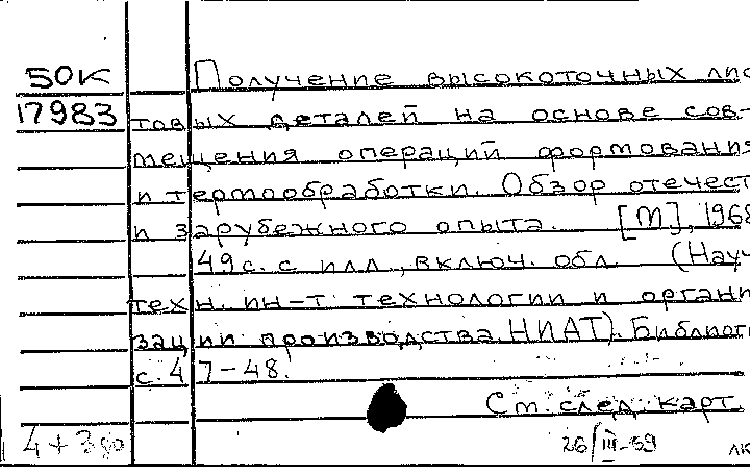 50К Получение высокоточных лис
17983 товых деталей на основе сов-
мещения операций формования
и термообработки. Обзор отечест
и зарубежного опыта. [М], 1968
49 с. с илл., включ. обл. (Науч
техн. ин-т технологии и органи
зации производства НИАТ). Библиог
с. 47-48.
См. след. карт.
4+3
26/III-69